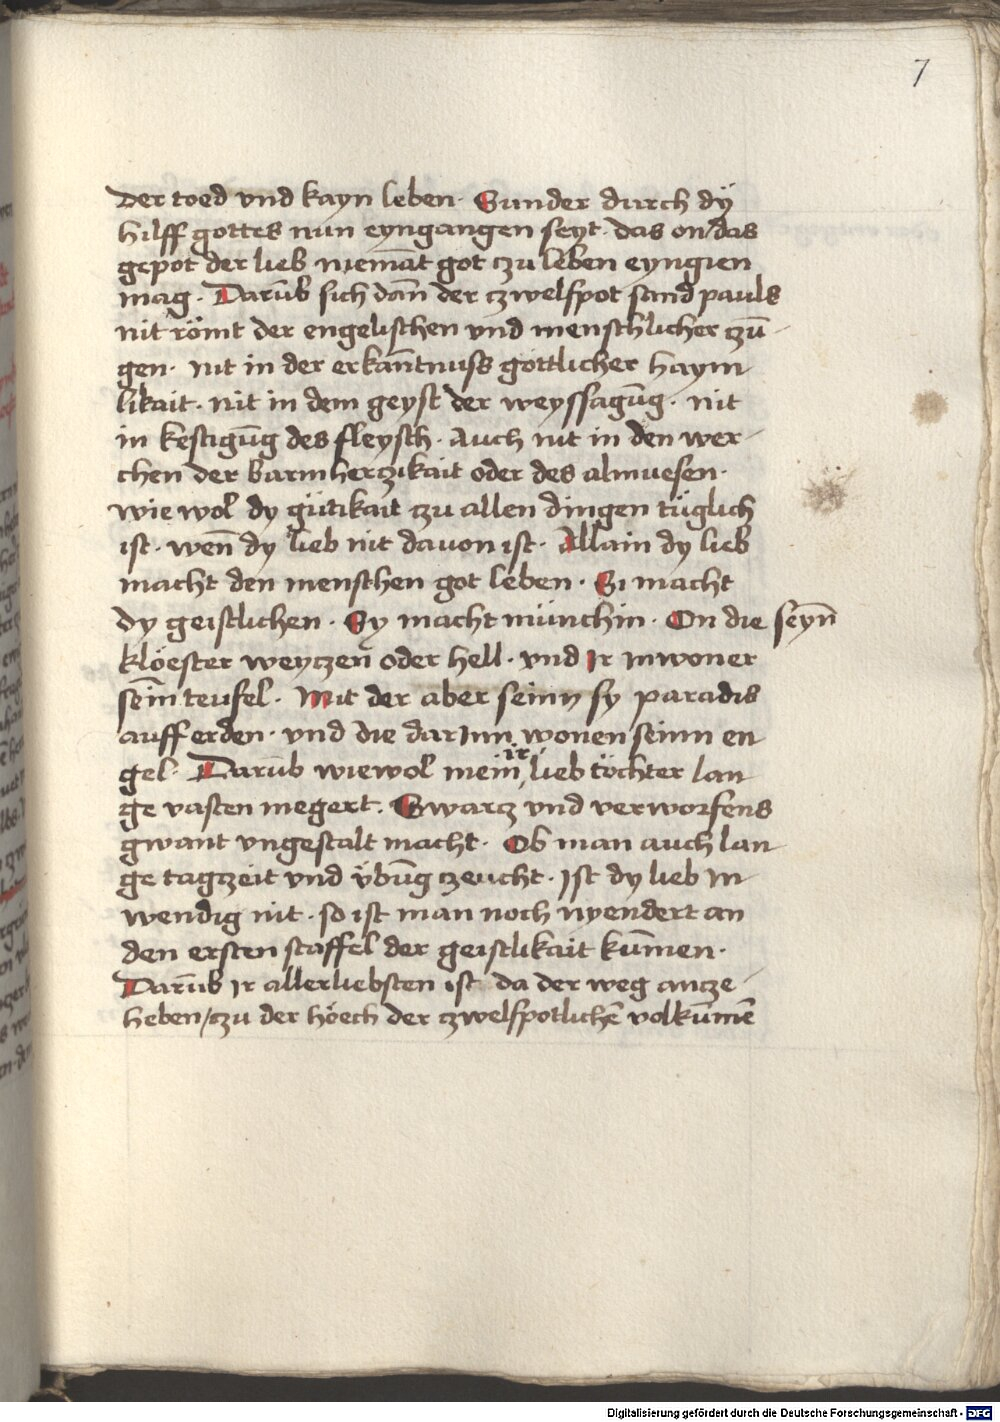 7
der toed vnd kayn leben · Sunder durch dÿ
hilff gottes nun eyngangen seyt · das on das
gepot der lieb niemāt got czu leben eyngien
mag · Darūb sich dañ der czwelfpot sand pauls
nit römt der engelischen vnd menschlicher zū-
gen · nit in der erkāntnuss göttlicher haym
likait · nit in dem geyst der weyssagūg · nit
in kestigūg des fleysch · Auch nit in den wer-
chen der barmherczikait oder des almuesen ·
wie wol dy gütikait czu allen dingen tüglich
ist · weñ dy lieb nit dauon ist · Allain dy lieb
macht den menschen got leben · Si macht
dy geistlichen · Sy macht münchin · On die seyñ
klöester weyczen oder hell · vnd Ir Inwoner
seīn teufel · Mit der aber seinn sy paradis
auff erden · vnd die darInn wonen seinn en
gel · Darūb wiewol mein ir lieb töchter lan
ge vasten megert · Swarcz vnd verworfens
gwant vngestalt macht · Ob man auch lan
ge tagczeit vnd v̈būg czeucht · Ist dy lieb In
wendig nit · so ist man noch nyendert an
den ersten staffel der geistlikait kūmen ·
Darūb Ir allerliebsten ist da der weg ancze-
heben / czu der höech der czwelfpotlichē volkūmē
Digitalisierung gefördert durch die Deutsche Forschungsgemeinschaft - DFG